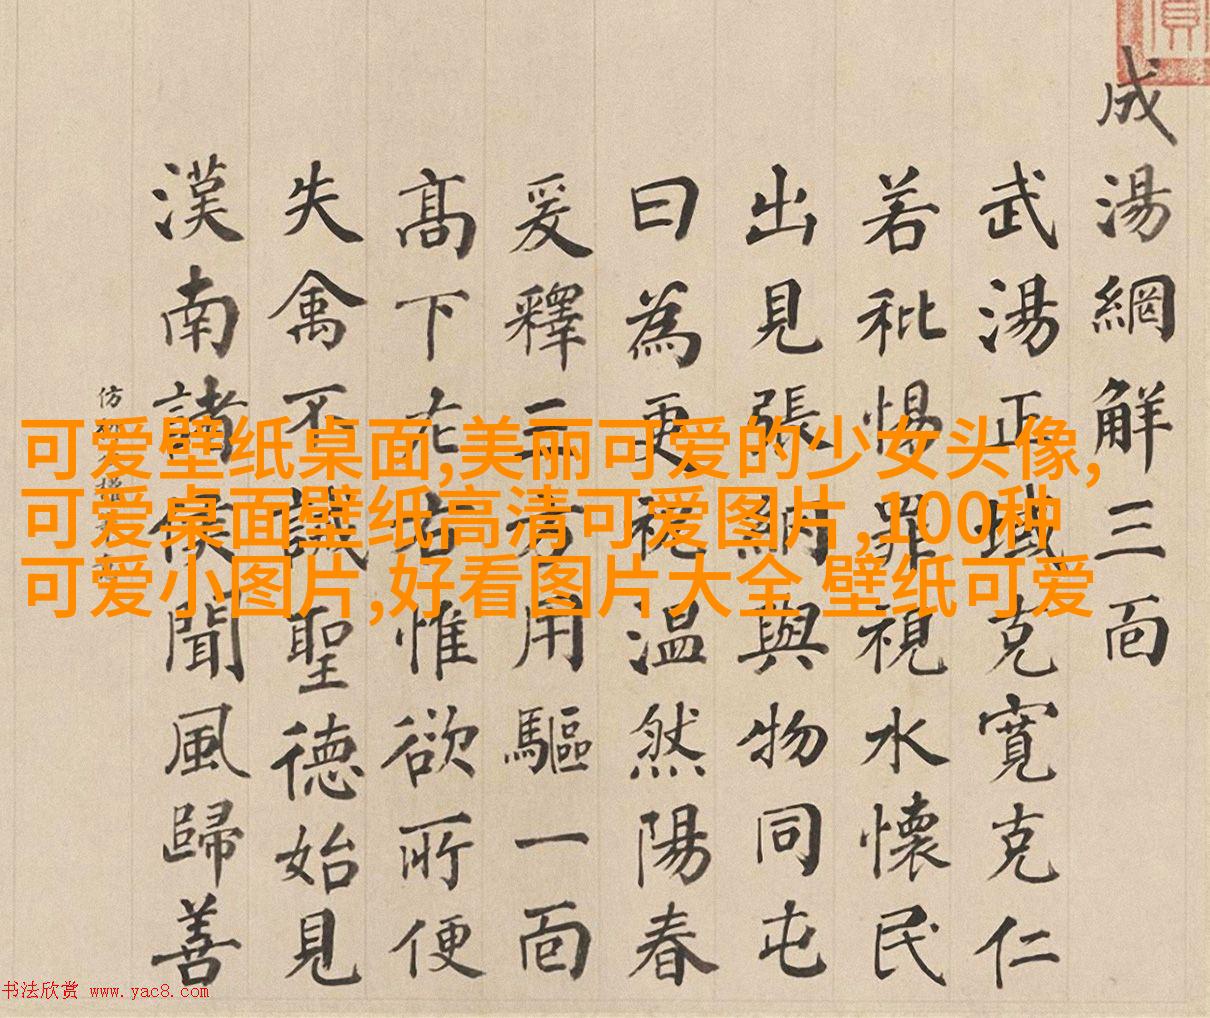 成湯網解三靣
武湯正域克寬克仁
若秕惕罪視水懷民
出見張網與物同屯
曰為更祝温然陽春
爰釋三方用驅一靣
髙下左右惟欲所便
失禽不誡聖德始見
漢南諸侯聞風歸善
仿
可爱壁纸桌面,美丽可爱的少女头像,
可爱桌面壁纸高清可爱图片,100种
可爱小图片,好看图片大全 壁纸可爱
书法欣赏 www.yac8.com